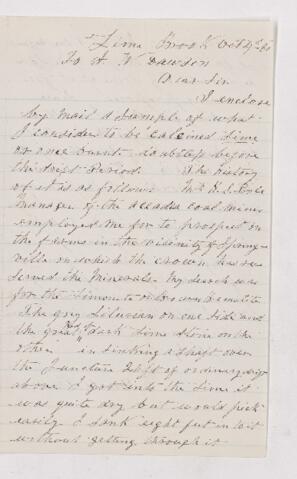 Lime Brook Oct 4th
To J. W. Dawson
Dear Sir
I enclose
by mail a sample of what
I consider to be calcined lime
or once burnt doubtless before
the drift Period. The history
of it is as follows Mr
manager of the Acadia coal mines
employed me for to prospect on
the farms in the vicinity of Spring-
ville on which the crown has re-
served the Minerals. My search was
for the Limonite or brown hematite
The grey Silurian on one side and
the dark lime stone on the
other in sinking a shaft over
the Junction 20 ft of ordinary
above I got into the lime it
was quite dry but would pick
easily I sank eight feet in it
without getting through it